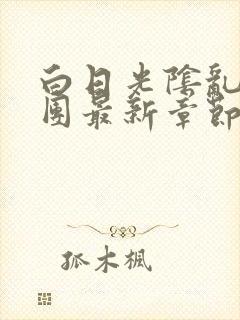 白日光陰亂
團最新章節
孤木楓